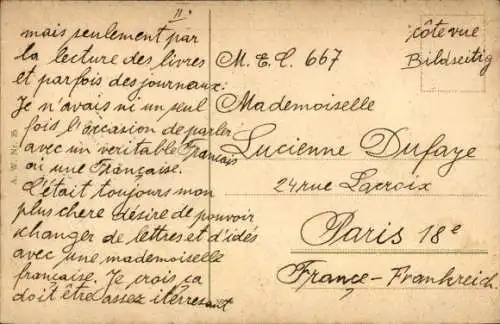 II.
mais seulement par
la lecture des livres
et parfois des journaux.
Je n'avais ni un seul
fois l'occasion de parler
avec un veritable Français
où une Française.
C'était toujours mon
plus chere désire de pouvoir
changer de lettres et d'idés
avec une mademoiselle
française. Je crois ça
doit être assez iterressant
côte vue
Bildseitig
M. E. C. 667
Mademoiselle
Lucienne Dufaye
24 rue Lacroix
Paris 18e
France - Frankreich.